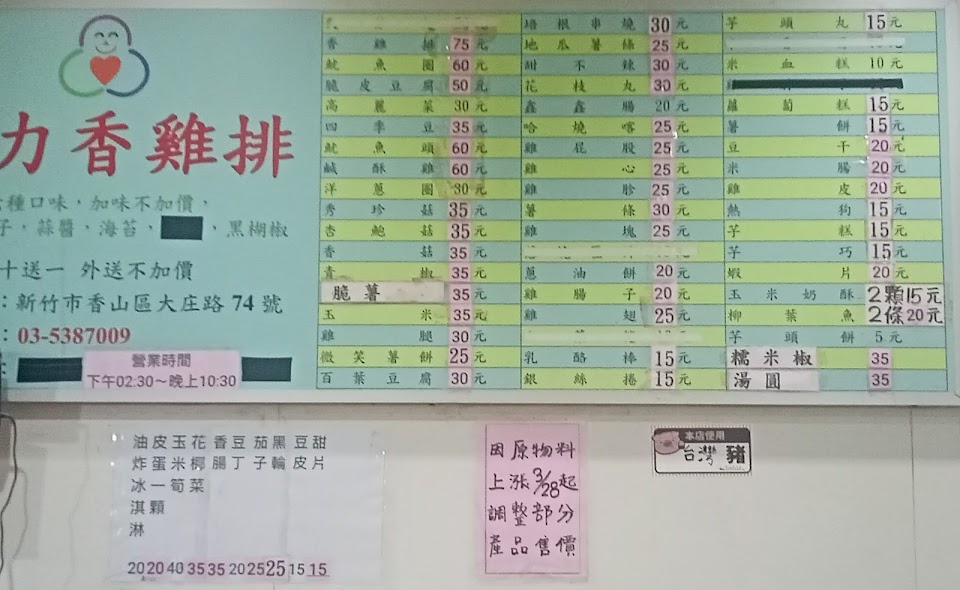 力香雞排
種口味，加味不加價，
子，蒜醬，海苔，
，黑胡椒
十送一 外送不加價
：新竹市香山區大庄路 74 號
：03-5387009
營業時間
下午02:30～晚上10:30
香雞排 75元
魷魚圈 60元
脆皮豆腐 50元
高麗菜 30元
四季豆 35元
魷魚頭 60元
鹹酥雞 60元
洋蔥圈 30元
秀珍菇 35元
杏鮑菇 35元
香菇 35元
青椒 35元
脆薯 35元
玉米 35元
雞腿 30元
微笑薯餅 25元
百葉豆腐 30元
培根串燒 30元
地瓜薯條 25元
甜不辣 30元
花枝丸 30元
鑫鑫腸 20元
哈燒喀 25元
雞屁股 25元
雞心 25元
雞胗 25元
薯條 30元
雞塊 25元
蔥油餅 20元
雞腸子 20元
雞翅 25元
乳酪棒 15元
銀絲捲 15元
芋頭丸 15元
米血糕 10元
蘿蔔糕 15元
薯餅 15元
豆干 20元
米腸 20元
雞皮 20元
熱狗 15元
芋糕 15元
芋巧 15元
蝦片 20元
玉米奶酥 2顆15元
柳葉魚 2條20元
芋頭餅 5元
糯米椒 35
湯圓 35
油皮玉花香豆茄黑豆甜
炸蛋米椰腸丁子輪皮片
冰一筍菜
淇顆
淋
20 20 40 35 35 20 25 25 15 15
因原物料
上漲3/28起
調整部分
產品售價
本店使用
台灣豬